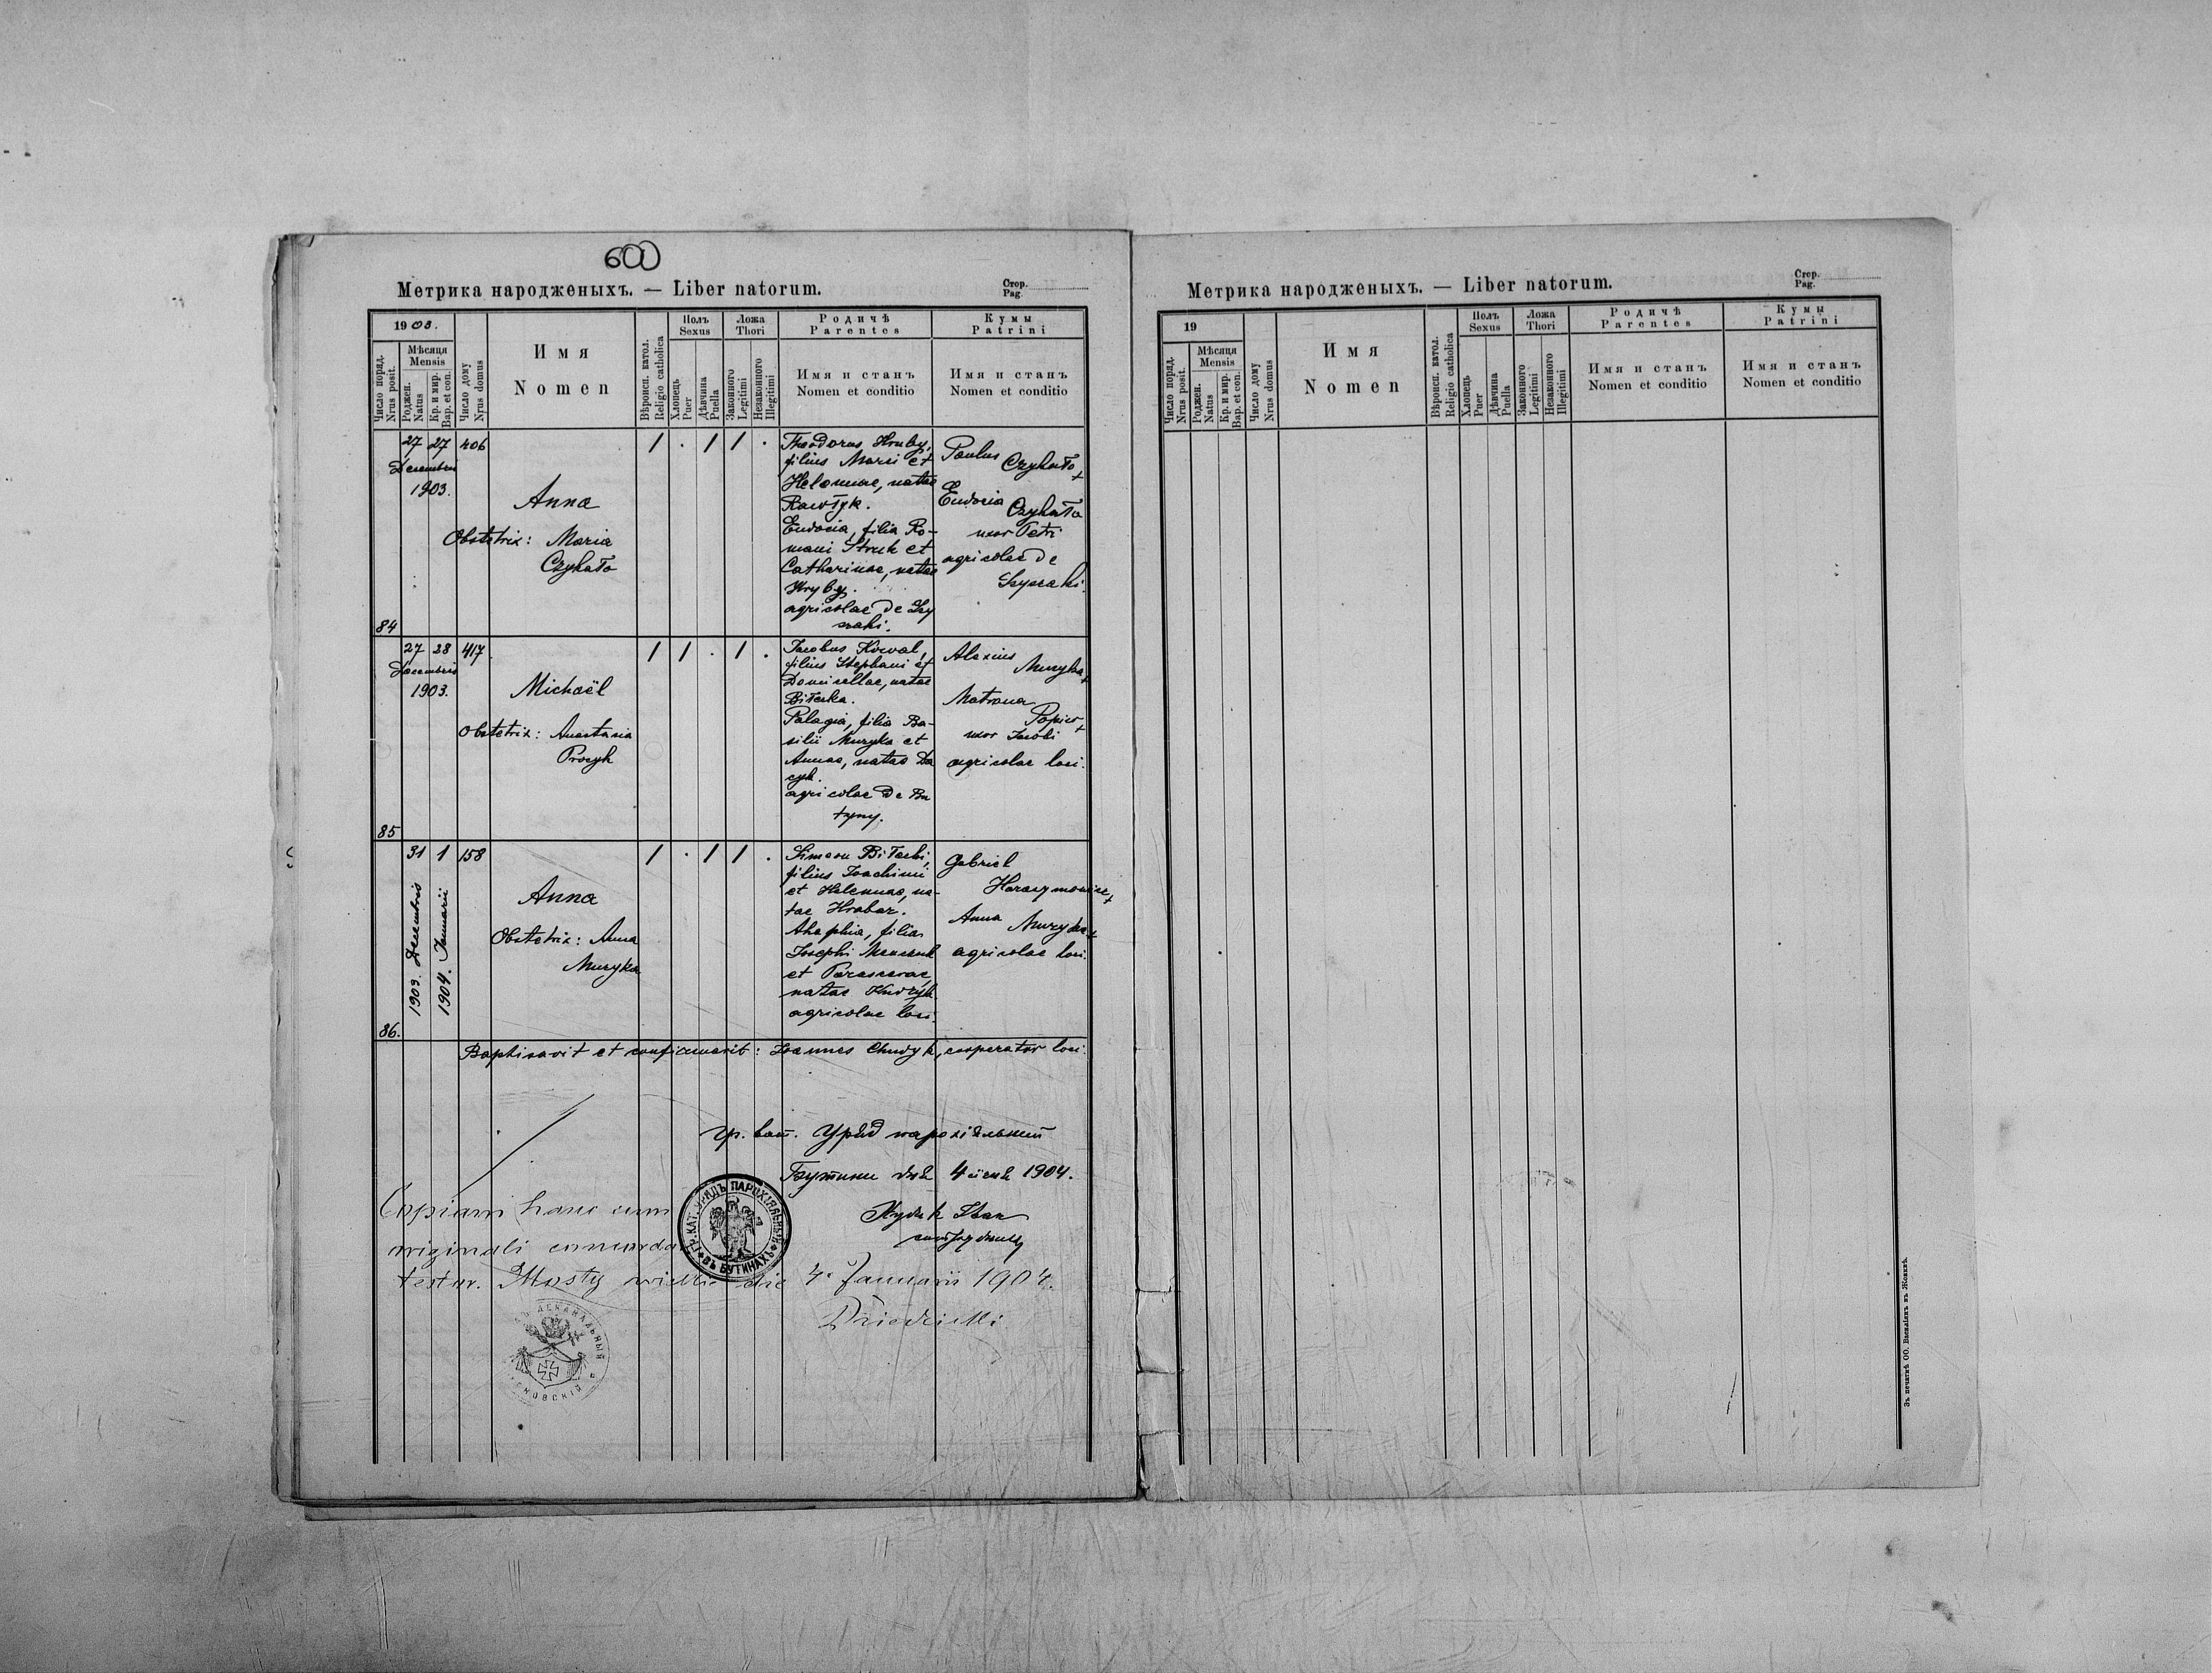 600
Метрика народженыхъ. — Liber natorum.
Стор.
Pag.
1903.
Число поряд.
Nrus posit.
Мѣсяця
Mensis
Роджен.
Natus
Кр. и мир.
Bap. et con.
Число дому
Nrus domus
Имя
Nomen
Вѣроисп. катол.
Religio catholica
Полъ
Sexus
Хлопець
Puer
Дѣвчина
Puella
Ложа
Thori
Законного
Legitimi
Незаконного
Illegitimi
Родичѣ
Parentes
Имя и станъ
Nomen et conditio
Кумы
Patrini
Имя и станъ
Nomen et conditio
84
27 27 406
Decembris
1903.
Anna
Obstetrix: Maria
Czykało
/ . / / .
Theodorus Hruby,
filius Marci et
Helennae, natae
Rawłyk.
Eudocia, filia Ro-
mani Struk et
Catharinae, natae
Hryby.
agricolae de
Paulus
Czykało +
Eudocia
Czykało
uxor Petri
agricolae de
85
27 28 417
Decembris
1903.
Michaël
Obstetrix: Anastasia
Procyk
/ / . / .
Jacobus Kowal,
filius Stephani et
Domicellae, natae
Biłecka.
Palagia, filia Ba-
silii Muzyka et
Annae, natae Da
cyk.
agricolae de Bu
tyny.
Alexius
Muzyka +
Matrona
uxor Jacobi
agricolae loci.
86.
31 1 158
1903. Decembris
1904. Januarii
Anna
Obstetrix: Anna
Muzyka
/ . / / .
Simeon Biłecki,
filius Joachimi
et Helennae, na-
tae Hrabar.
Ahaphia, filia
Josephi
et Parascevae,
natae
agricolae loci.
Gabriel
Harasymowicz +
Anna
Muzyka +
agricolae loci.
Baptisavit et confirmavit: Joannes Chudyk, cooperator loci.
гр. кат. Урядъ парохіяльный
Бутины дня 4 січня 1904.
Худик Іван
сотрудникъ
ГР. КАТ. УРЯДЪ ПАРОХІЯЛЬНЫЙ ВЪ БУТИНАХЪ
Copiam hanc cum
originali concordare
testor. Mosty wielkie die 4. Januarii 1904.
ДЕКАНАЛЬНЫЙ
Метрика народженыхъ. — Liber natorum.
Стор.
Pag.
19
Число поряд.
Nrus posit.
Мѣсяця
Mensis
Роджен.
Natus
Кр. и мир.
Bap. et con.
Число дому
Nrus domus
Имя
Nomen
Вѣроисп. катол.
Religio catholica
Полъ
Sexus
Хлопець
Puer
Дѣвчина
Puella
Ложа
Thori
Законного
Legitimi
Незаконного
Illegitimi
Родичѣ
Parentes
Имя и станъ
Nomen et conditio
Кумы
Patrini
Имя и станъ
Nomen et conditio
Зъ печатнѣ ОО. Василіянъ въ Жовквѣ.